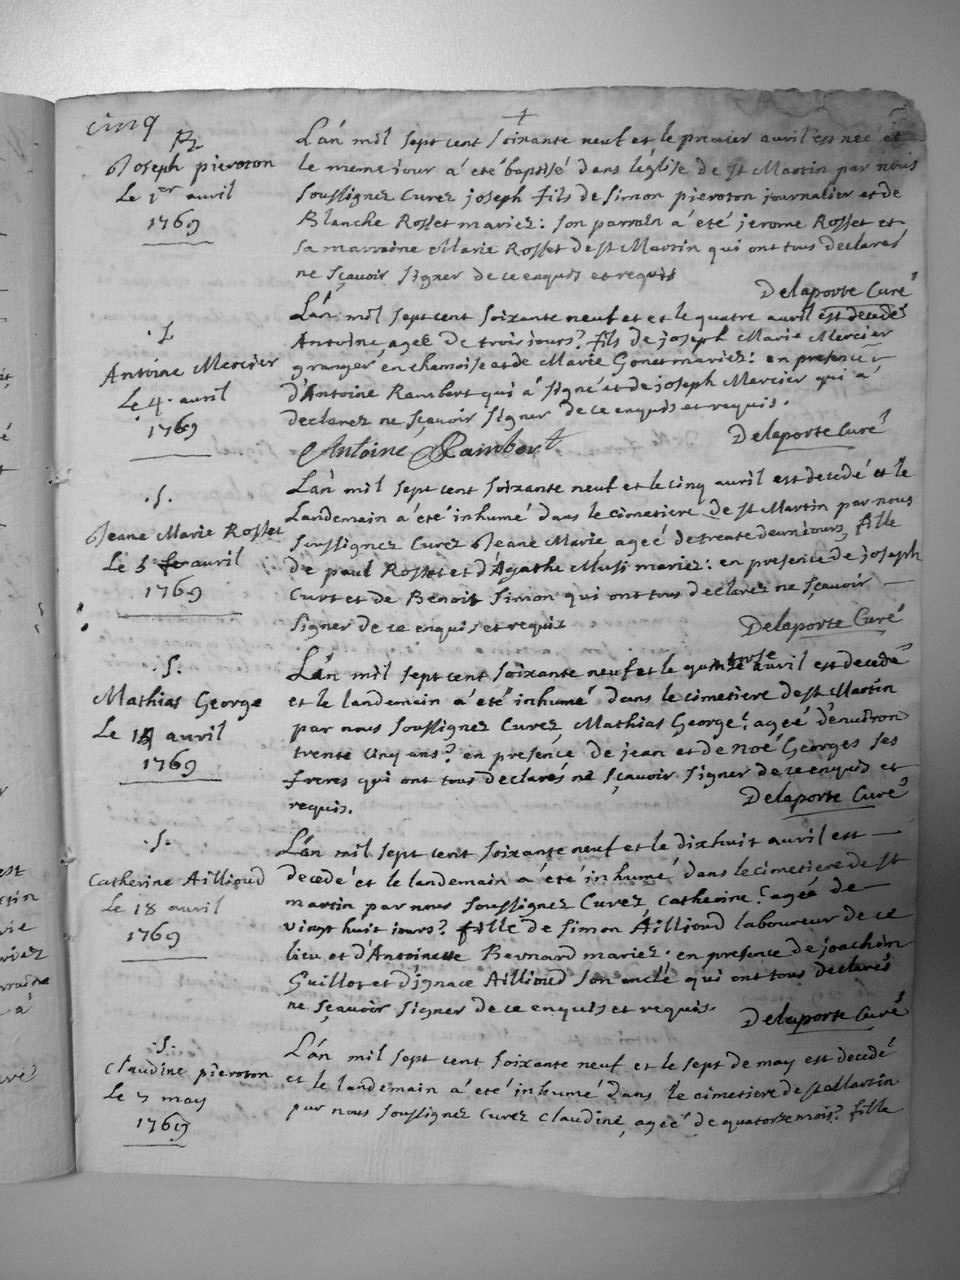 cinq
Bz
Joseph pieroton
Le 1er avril
1769
L'an mil sept cent soixante neuf et le premier avril est neé et
le meme iour a été baptisé dans l'église de st Martin par nous
soussignez Curez joseph fils de Simon pieroton journalier et de
Blanche Rosset mariez: son parrain a été jerome Rosset et
sa marraine Marie Rosset de st Martin qui ont tous declarés
ne sçavoir signer de ce enquis et requis
Delaporte Curé
.S.
Antoine Mercier
Le 4. avril
1769
L'an mil sept cent soixante neuf et et le quatre avril est decedé
Antoine ageé de trois iours? fils de joseph Marie Mercier
granger en chamoise et de Marie Gonet mariez: en presence
d'Antoine Rambert qui a signé et de joseph Mercier qui a
declarez ne sçavoir signer de ce enquis et requis.
Antoine Rambert
Delaporte Curé
.S.
Jeane Marie Rosset
Le 5 avril
1769
L'an mil sept cent soixante neuf et le cinq avril est decedé et le
Landemain a été inhumé dans le cimetiere de st Martin par nous
soussignez Curez Jeane Marie ageé de trente deux iours, fille
de paul Rosset et d'Agathe Mussi mariez: en presence de joseph
Curt et de Benoit Simon qui ont tous declarez ne sçavoir
signer de ce enquis et requis
Delaporte Curé
.S.
Mathias George
Le 14 avril
1769
L'an mil sept cent soixante neuf et le quatorse avril est decedé
et le landemain a été inhumé dans le cimetiere de st Martin
par nous soussignez Curez, Mathias George? ageé d'environ
trente cinq ans? en presence de jean et de noé Georges ses
freres qui ont tous declarés ne sçavoir signer de ce enquis et
requis.
Delaporte Curé
.S.
Catherine Aillioud
Le 18 avril
1769
L'an mil sept cent soixante neuf et le dixhuit avril est
decedé et le landemain a été inhumé dans le cimetiere de st
martin par nous soussignez Curez Catherine? ageé de
vingt huit iours? fille de Simon Aillioud laboureur de ce
lieu et d'Antoinette Bernard mariez. en presence de joachim
Guillot et d'ignace Aillioud son onclé qui ont tous declarés
ne sçavoir signer de ce enquis et requis.
Delaporte Curé
.S.
Claudine pieroton
Le 7 may
1769
L'an mil sept cent soixante neuf et le sept de may est decedé
et le landemain a été inhumé dans le cimetiere de st Martin
par nous soussignez Curez Claudine, ageé de quatorse mois? fille